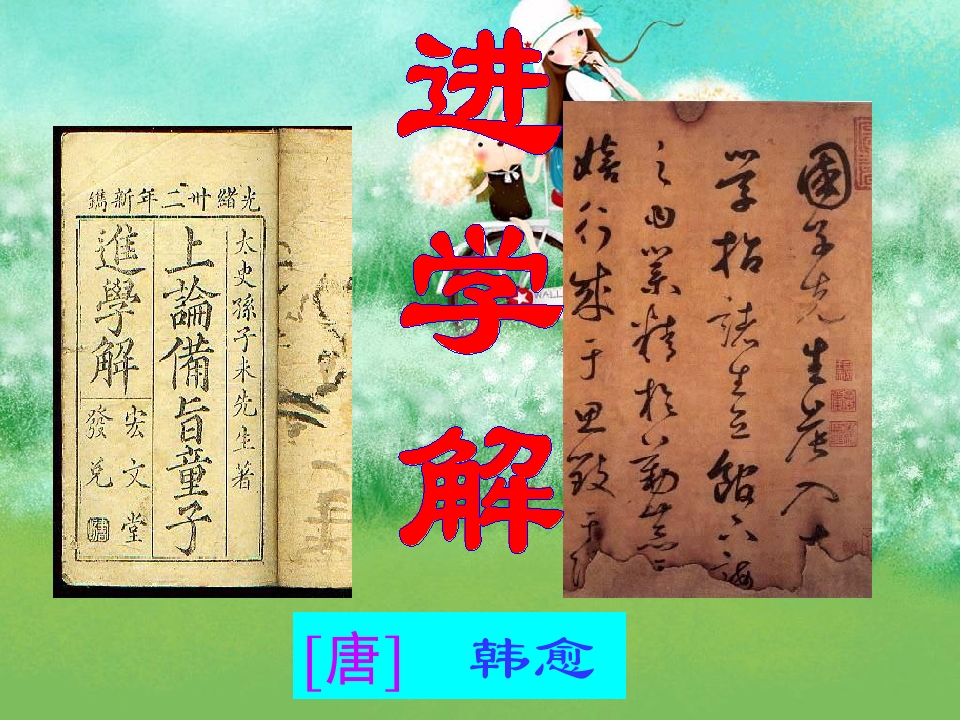 进学解
光緒卅二年新鐫
太史孫子未先生著
上論備旨童子
進學解
宏文堂
發兌
國子先生晨入太
学招諸生立館下誨
之曰業精於勤荒
嬉行成于思毀于
WALL
[唐] 韩愈